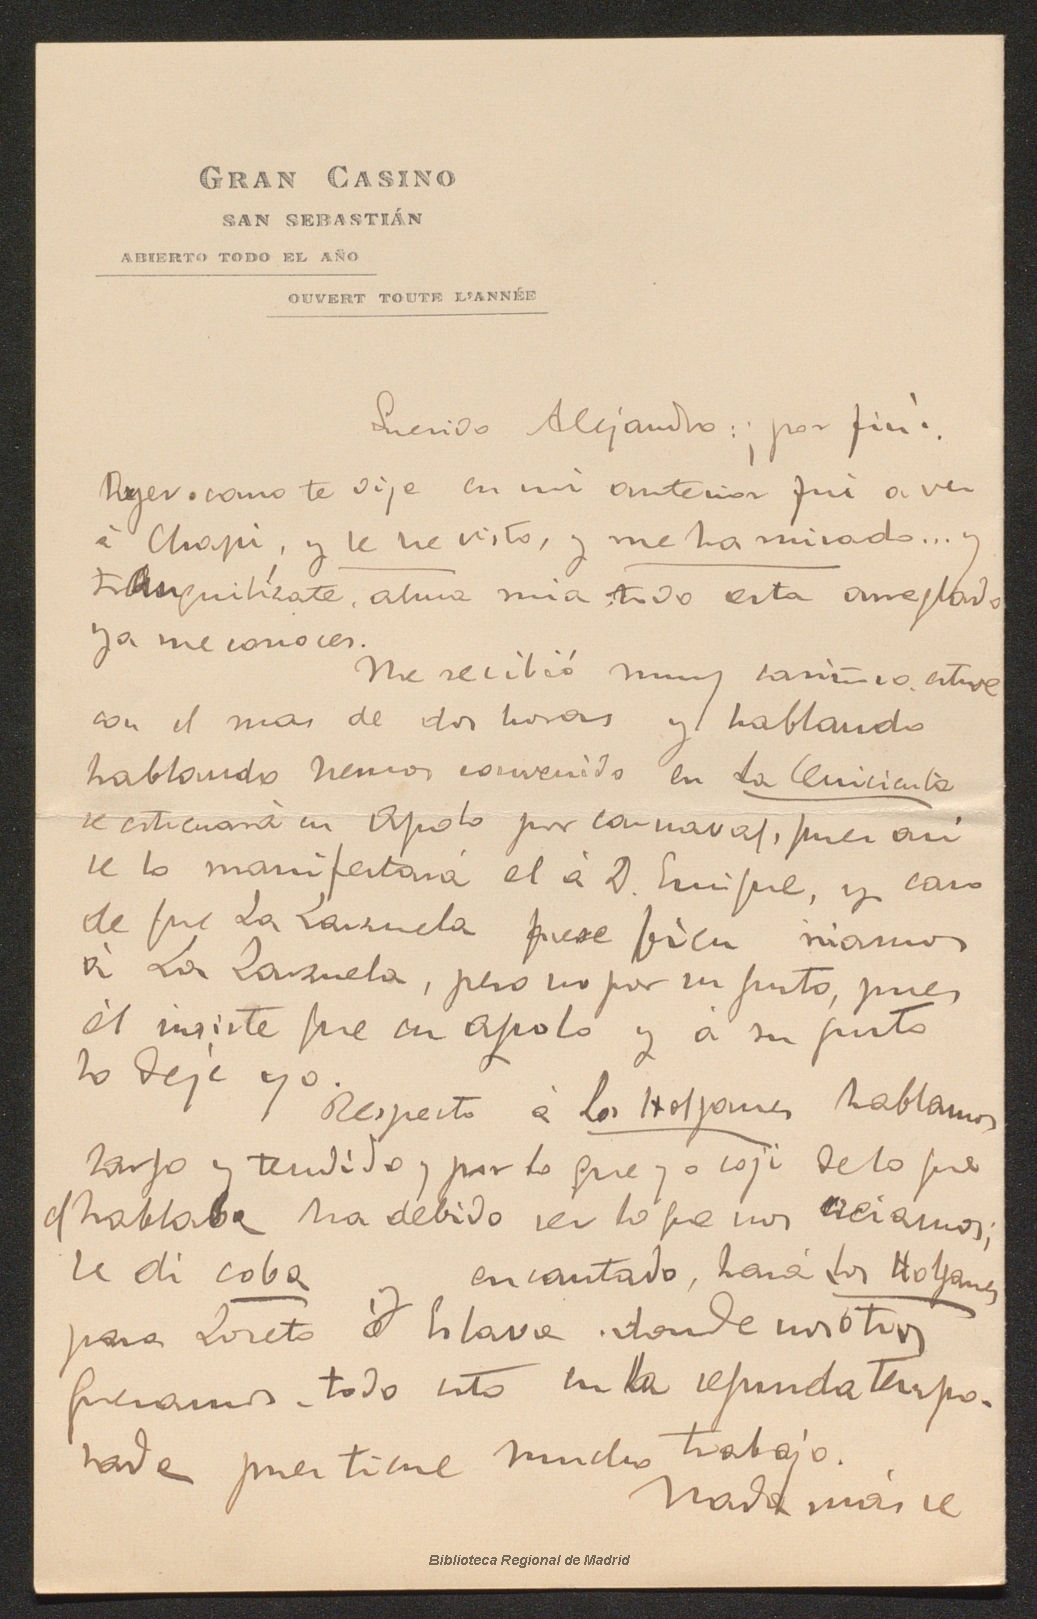 GRAN CASINO
SAN SEBASTIÁN
ABIERTO TODO EL AÑO
OUVERT TOUTE L'ANNÉE
Querido Alejandro: ¡por fin!.
Ayer como te dije en mi anterior fui a ver
á Chapi, y le he visto, y me ha mirado... y
tranquilizate, alma mia todo esta arreglado
ya me conoces.
Me recibió muy cariñoso estuve
con el mas de dos horas y hablando
hablando hemos convenido en La Cenicienta
se estrenará en Apolo por carnaval, pues asi
se lo manifestará el á D. Enrique, y caso
de que La Zarzuela fuese bien iriamos
á La Zarzuela, pero no por su gusto, pues
él insiste que en Apolo y á su gusto
lo dejé yo.
Respecto á Los Holgazanes hablamos
largo y tendido y por lo que yo coji de lo que
el hablaba ha debido ser lo que nos creiamos;
le di coba y encantado, hará Los Holgazanes
para Loreto ó Eslava donde nosotros
queramos todo esto en la segunda tempo-
rada pues tiene mucho trabajo.
Nada más se
Biblioteca Regional de Madrid